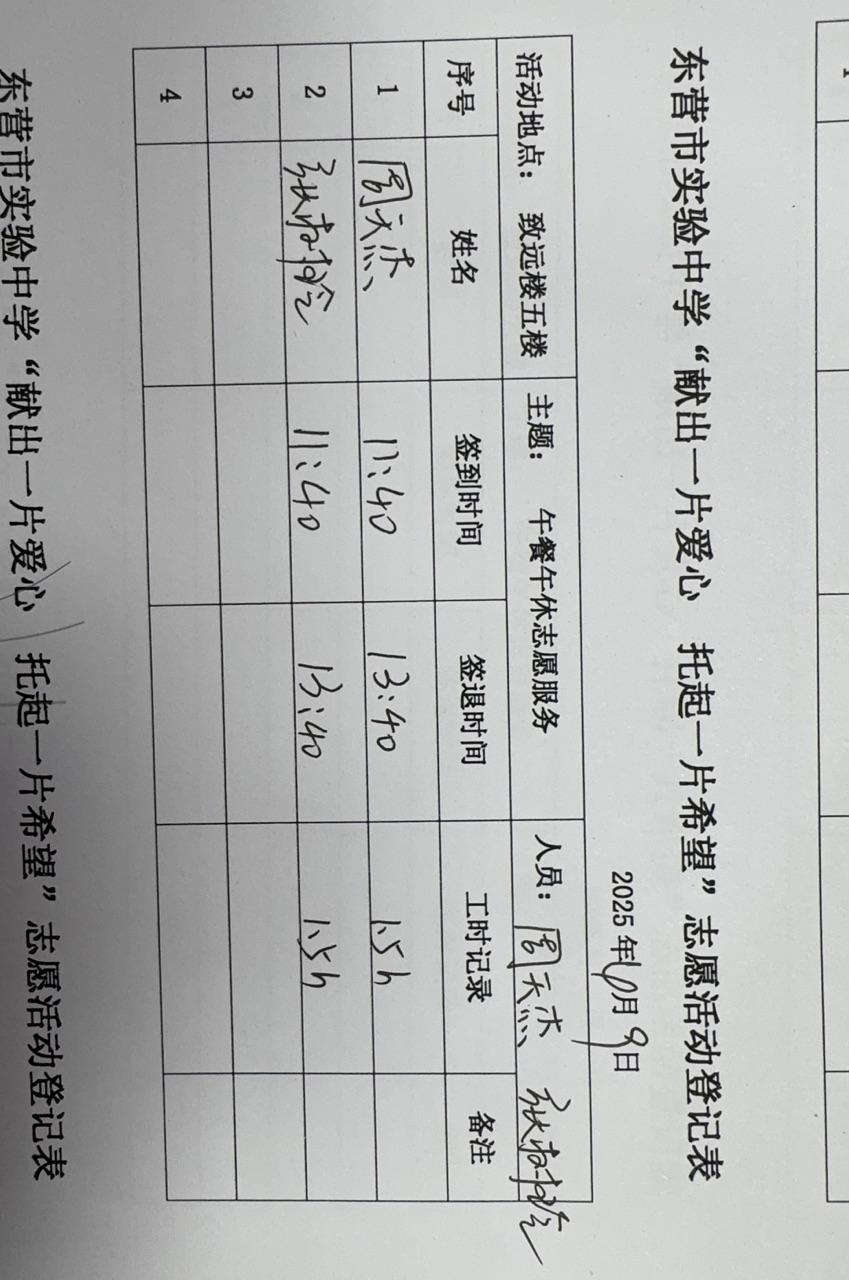 东营市实验中学“献出一片爱心 托起一片希望”志愿活动登记表
2025年10月9日
活动地点： 致远楼五楼 主题： 午餐午休志愿服务 人员： 周天杰
序号 姓名 签到时间 签退时间 工时记录 备注
1 周天杰 11:40 13:40 1.5h
2 11:40 13:40 1.5h
3
4
东营市实验中学“献出一片爱心 托起一片希望”志愿活动登记表